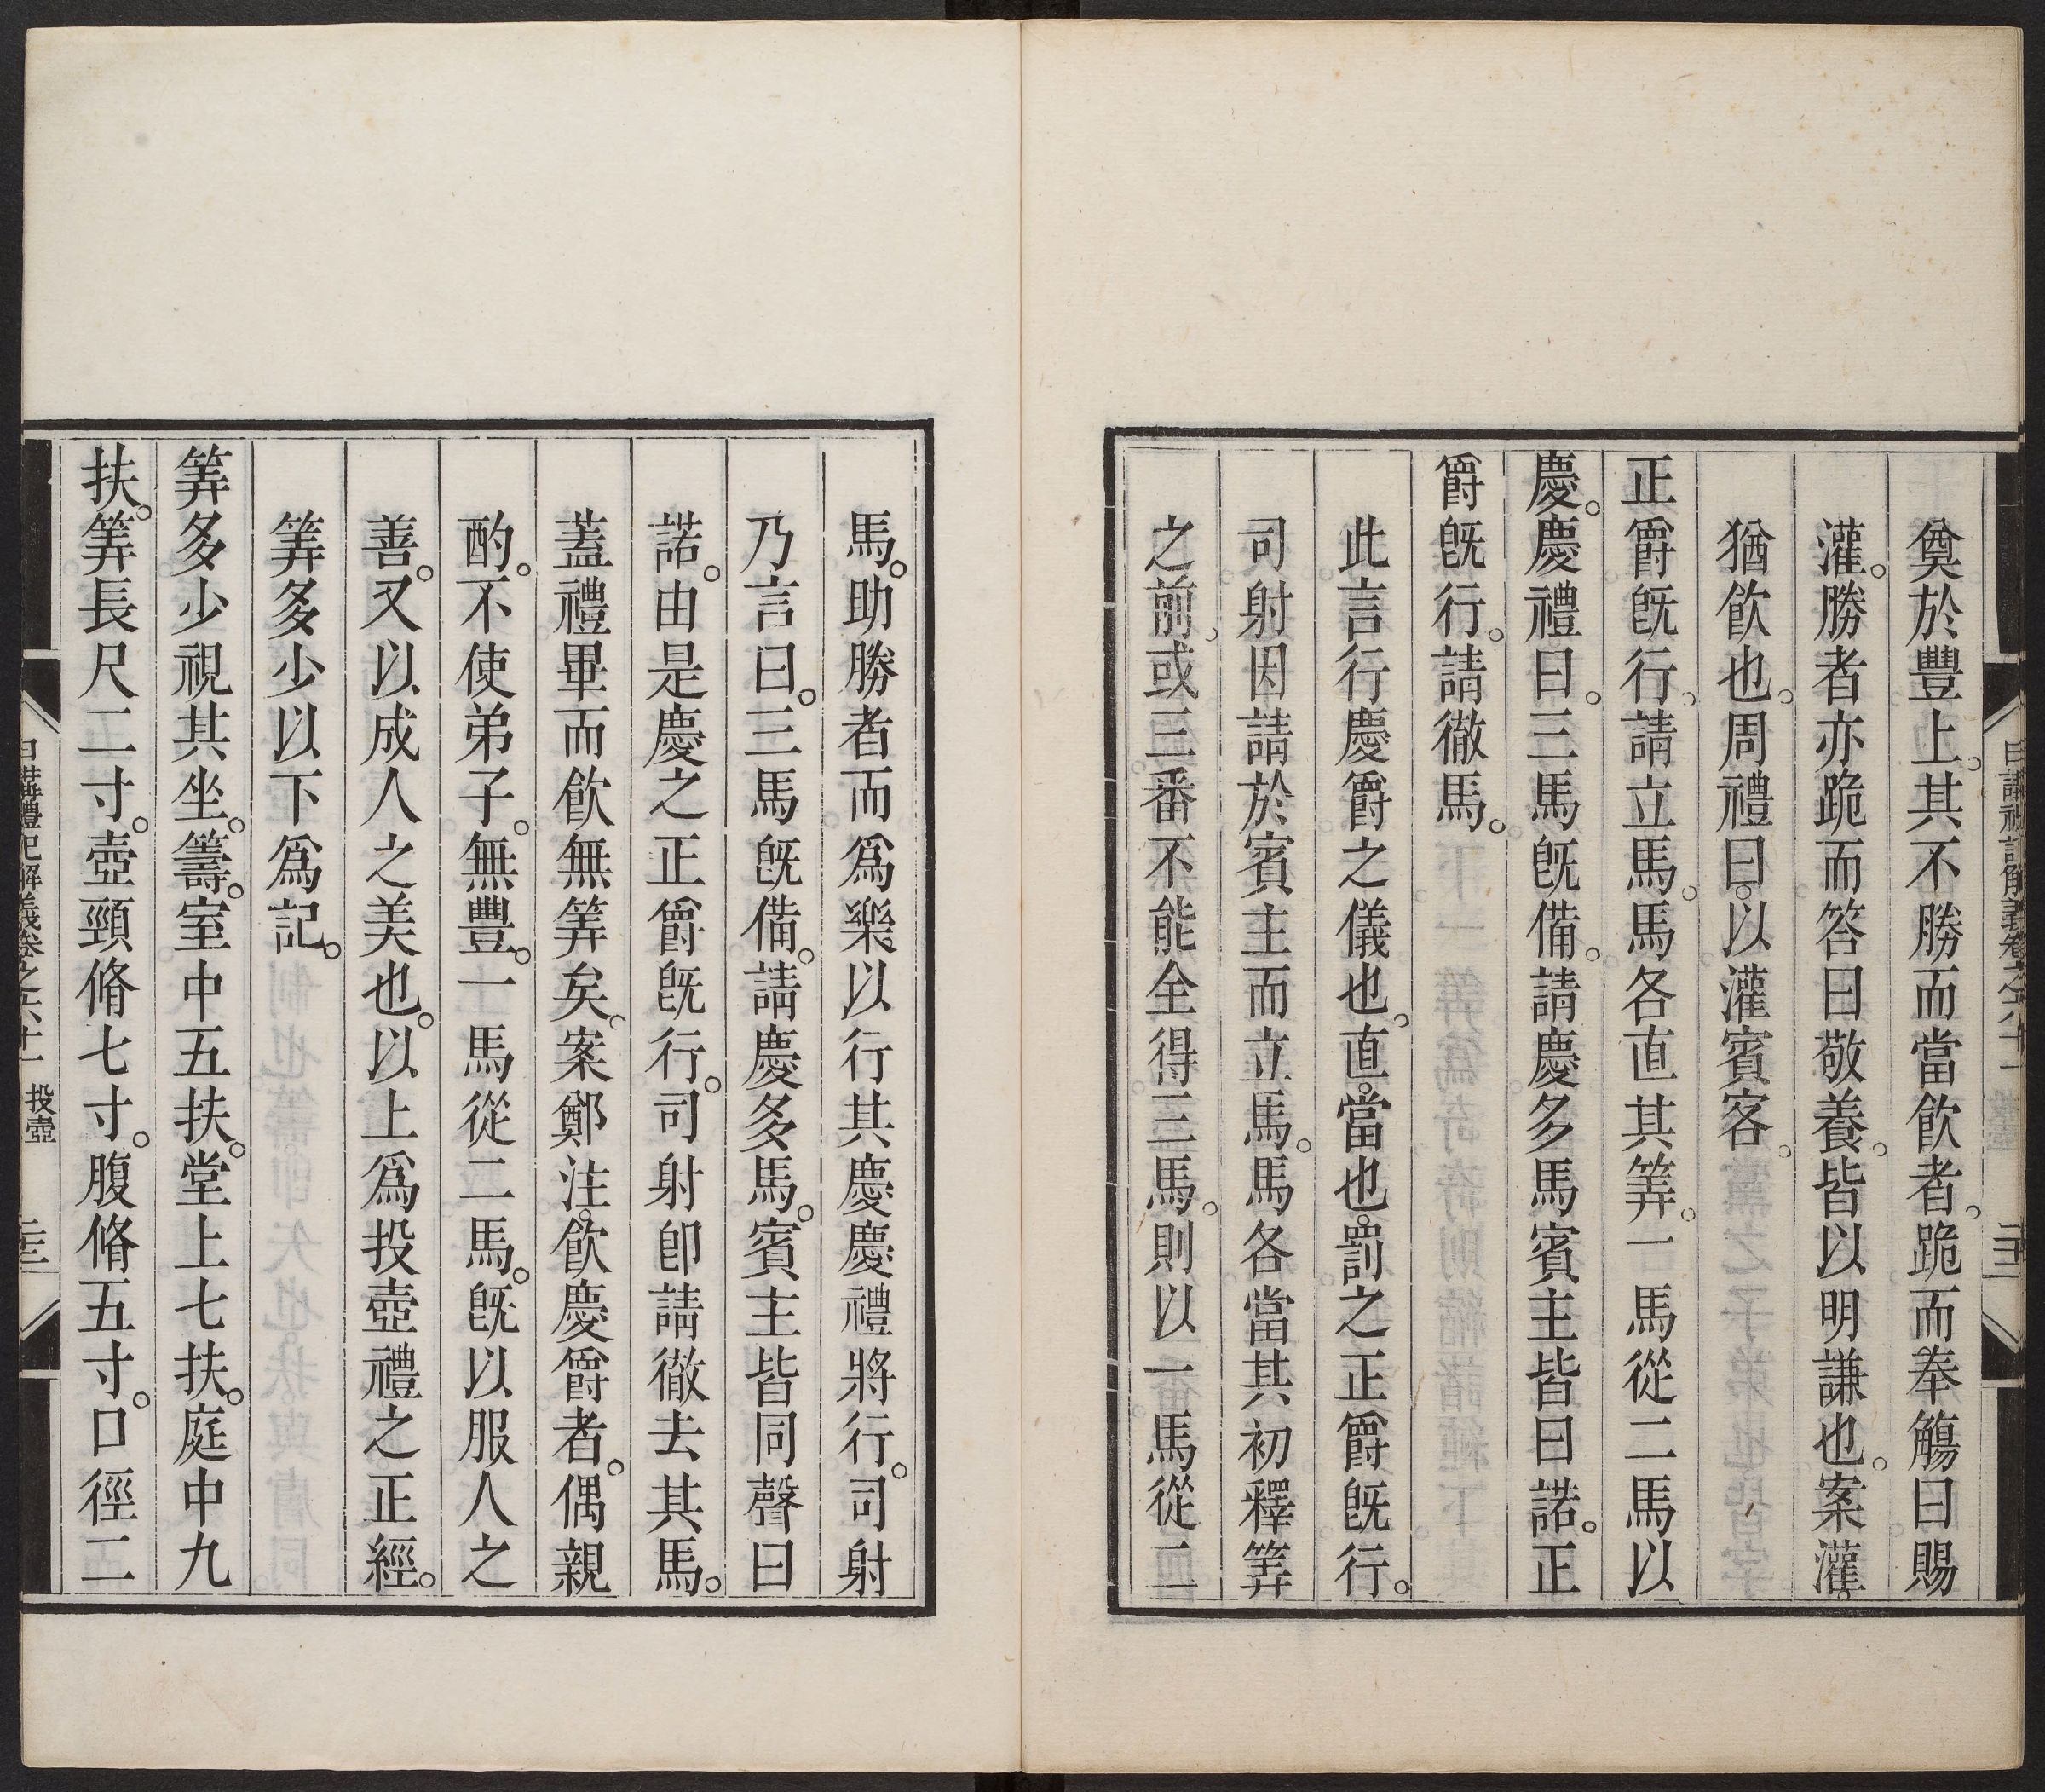 奠於豐上。其不勝而當飮者。跪而奉觴曰賜
灌。勝者亦跪而答曰敬養。皆以明謙也。案灌。
猶飮也。周禮曰。以灌賓客。
正爵旣行。請立馬。馬各直其筭。一馬從二馬以
慶。慶禮曰。三馬旣備。請慶多馬賓主皆曰諾。正
爵旣行。請徹馬。
此言行慶爵之儀也。直。當也。罰之正爵旣行。
司射因請於賓主而立馬。馬各當其初釋筭
之前。或三番不能全得三馬。則以一馬從二
馬。助勝者而爲樂以行其慶慶禮將行。司射
乃言曰。三馬旣備。請慶多馬。賓主皆同聲曰
諾。由是慶之正爵旣行。司射卽請徹去其馬。
蓋禮畢而飮無筭矣。案鄭注。飮慶爵者。偶親
酌。不使弟子。無豐。一馬從二馬。旣以服人之
善。又以成人之美也。以上爲投壺禮之正經。
筭多少以下爲記。
筭多少視其坐。籌。室中五扶。堂上七扶。庭中九
扶。筭長尺二寸。壺頸脩七寸。腹脩五寸。口徑二
日講禮記解義卷之六十一 投壺